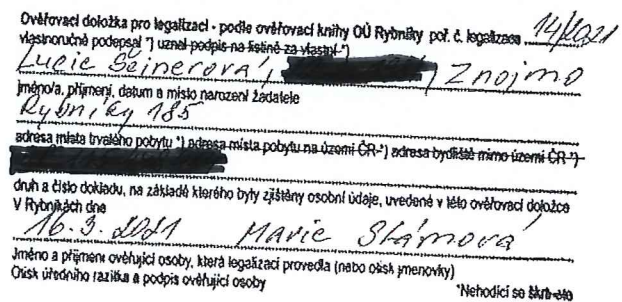 Ověřovací doložka pro legalizaci - podle ověřovací knihy OÚ Rybníky poř. č. legalizace 14/2021
vlastnoručně podepsal *) uznal podpis na listině za vlastní *)
Lucie Seinerová, Znojmo
jméno/a, příjmení, datum a místo narození žadatele
Rybníky 185
adresa místa trvalého pobytu *) adresa místa pobytu na území ČR *) adresa bydliště mimo území ČR *)
druh a číslo dokladu, na základě kterého byly zjištěny osobní údaje, uvedené v této ověřovací doložce
V Rybníkách dne
16.3.2021 Marie Slámová
Jméno a příjmení ověřující osoby, která legalizaci provedla (nebo otisk jmenovky)
Otisk úředního razítka a podpis ověřující osoby *Nehodící se škrtněte